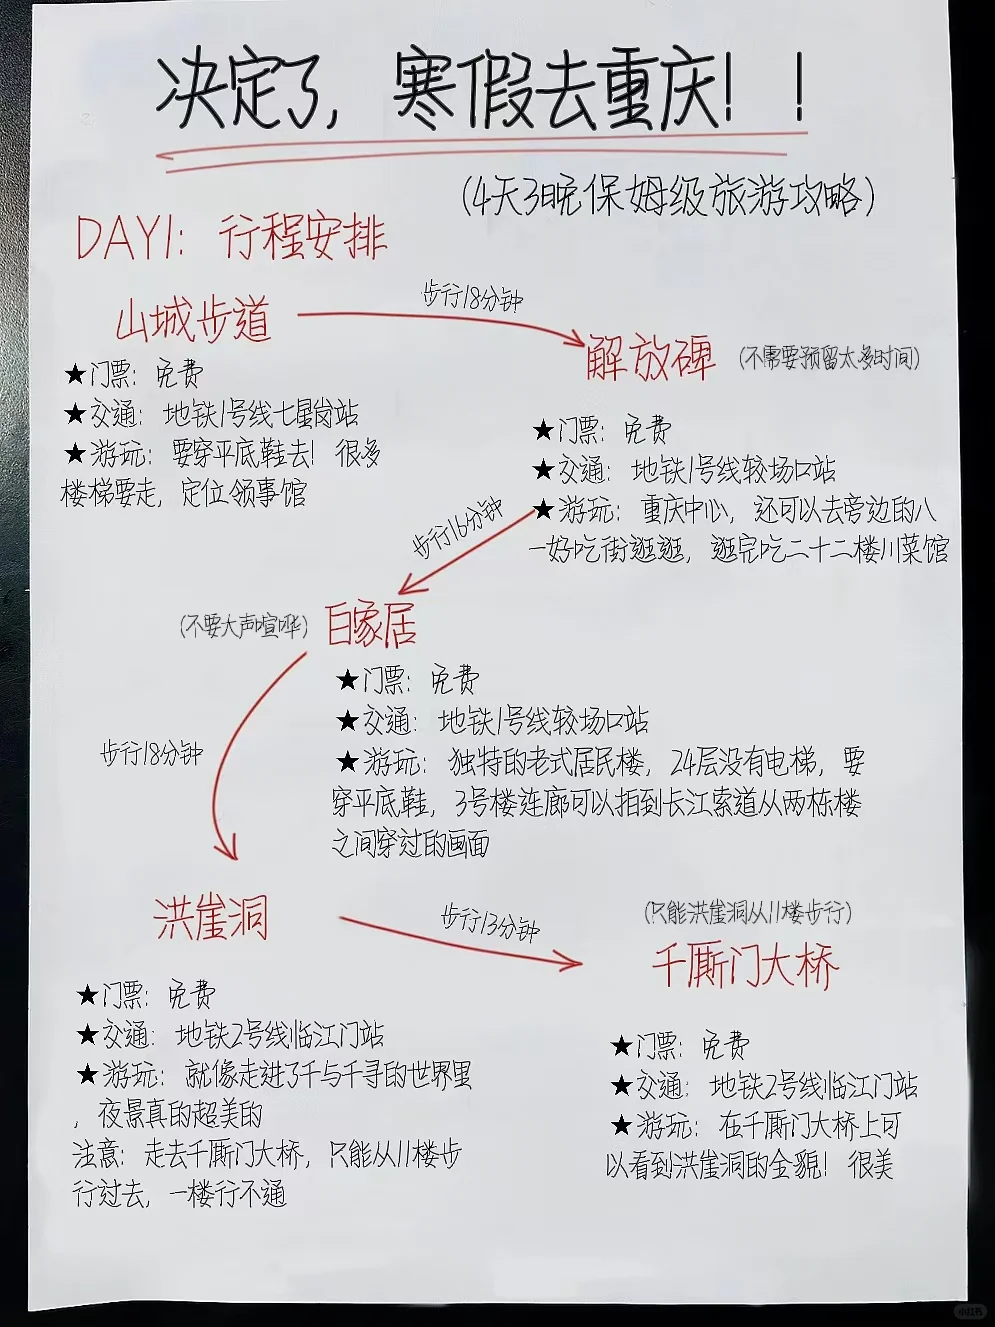 决定了，寒假去重庆！！
（4天3晚保姆级旅游攻略）
DAY1：行程安排
山城步道
步行18分钟
解放碑
（不需要预留太多时间）
★门票：免费
★交通：地铁1号线七星岗站
★游玩：要穿平底鞋去！很多
楼梯要走，定位领事馆
★门票：免费
★交通：地铁1号线较场口站
★游玩：重庆中心，还可以去旁边的八
一好吃街逛逛，逛完吃二十二楼川菜馆
步行16分钟
（不要大声喧哗）
白象居
★门票：免费
★交通：地铁1号线较场口站
★游玩：独特的老式居民楼，24层没有电梯，要
穿平底鞋，3号楼连廊可以拍到长江索道从两栋楼
之间穿过的画面
步行18分钟
洪崖洞
步行13分钟
（只能洪崖洞从11楼步行）
千厮门大桥
★门票：免费
★交通：地铁2号线临江门站
★游玩：就像走进了千与千寻的世界里
，夜景真的超美的
注意：走去千厮门大桥，只能从11楼步
行过去，一楼行不通
★门票：免费
★交通：地铁2号线临江门站
★游玩：在千厮门大桥上可
以看到洪崖洞的全貌！很美
小红书